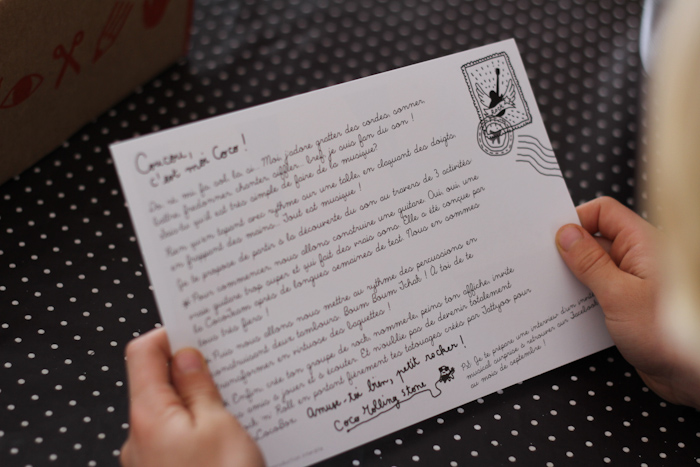 Coucou,
c'est moi Coco !
Do ré mi fa sol la si. Moi j'adore gratter des cordes, sonner,
battre, fredonner, chanter, siffler.. bref je suis fan du son !
qu'il est très simple de faire de la musique?
Rien qu'en tapant avec rythme sur une table, en claquant des doigts,
en frappant des mains. Tout est musique !
Je te propose de partir à la découverte du son au travers de 3 activités
Pour commencer nous allons construire une guitare. Oui, oui une
vraie guitare trop super et qui fait des vrais sons. Elle a été conçue par
la Cocoteam après de longues semaines de test. Nous en sommes
très fiers !
Puis nous allons nous mettre au rythme des percussions en
construisant deux tambours. Boum Boum Tchak ! A toi de te
transformer en virtuose des baguettes !
Enfin, crée ton groupe de rock, nomme-le, peins ton affiche, invite
amis à jouer et à écouter. Et n'oublie pas de devenir totalement
Rock n Roll en portant fièrement tes tatouages créés par Tattyoo pour
Cocobox.
Amuse-toi bien, petit rocker !
Coco Rolling Stone
PS: Je te prépare une interview d'un
musical surprise à retrouver sur
au mois de septembre !